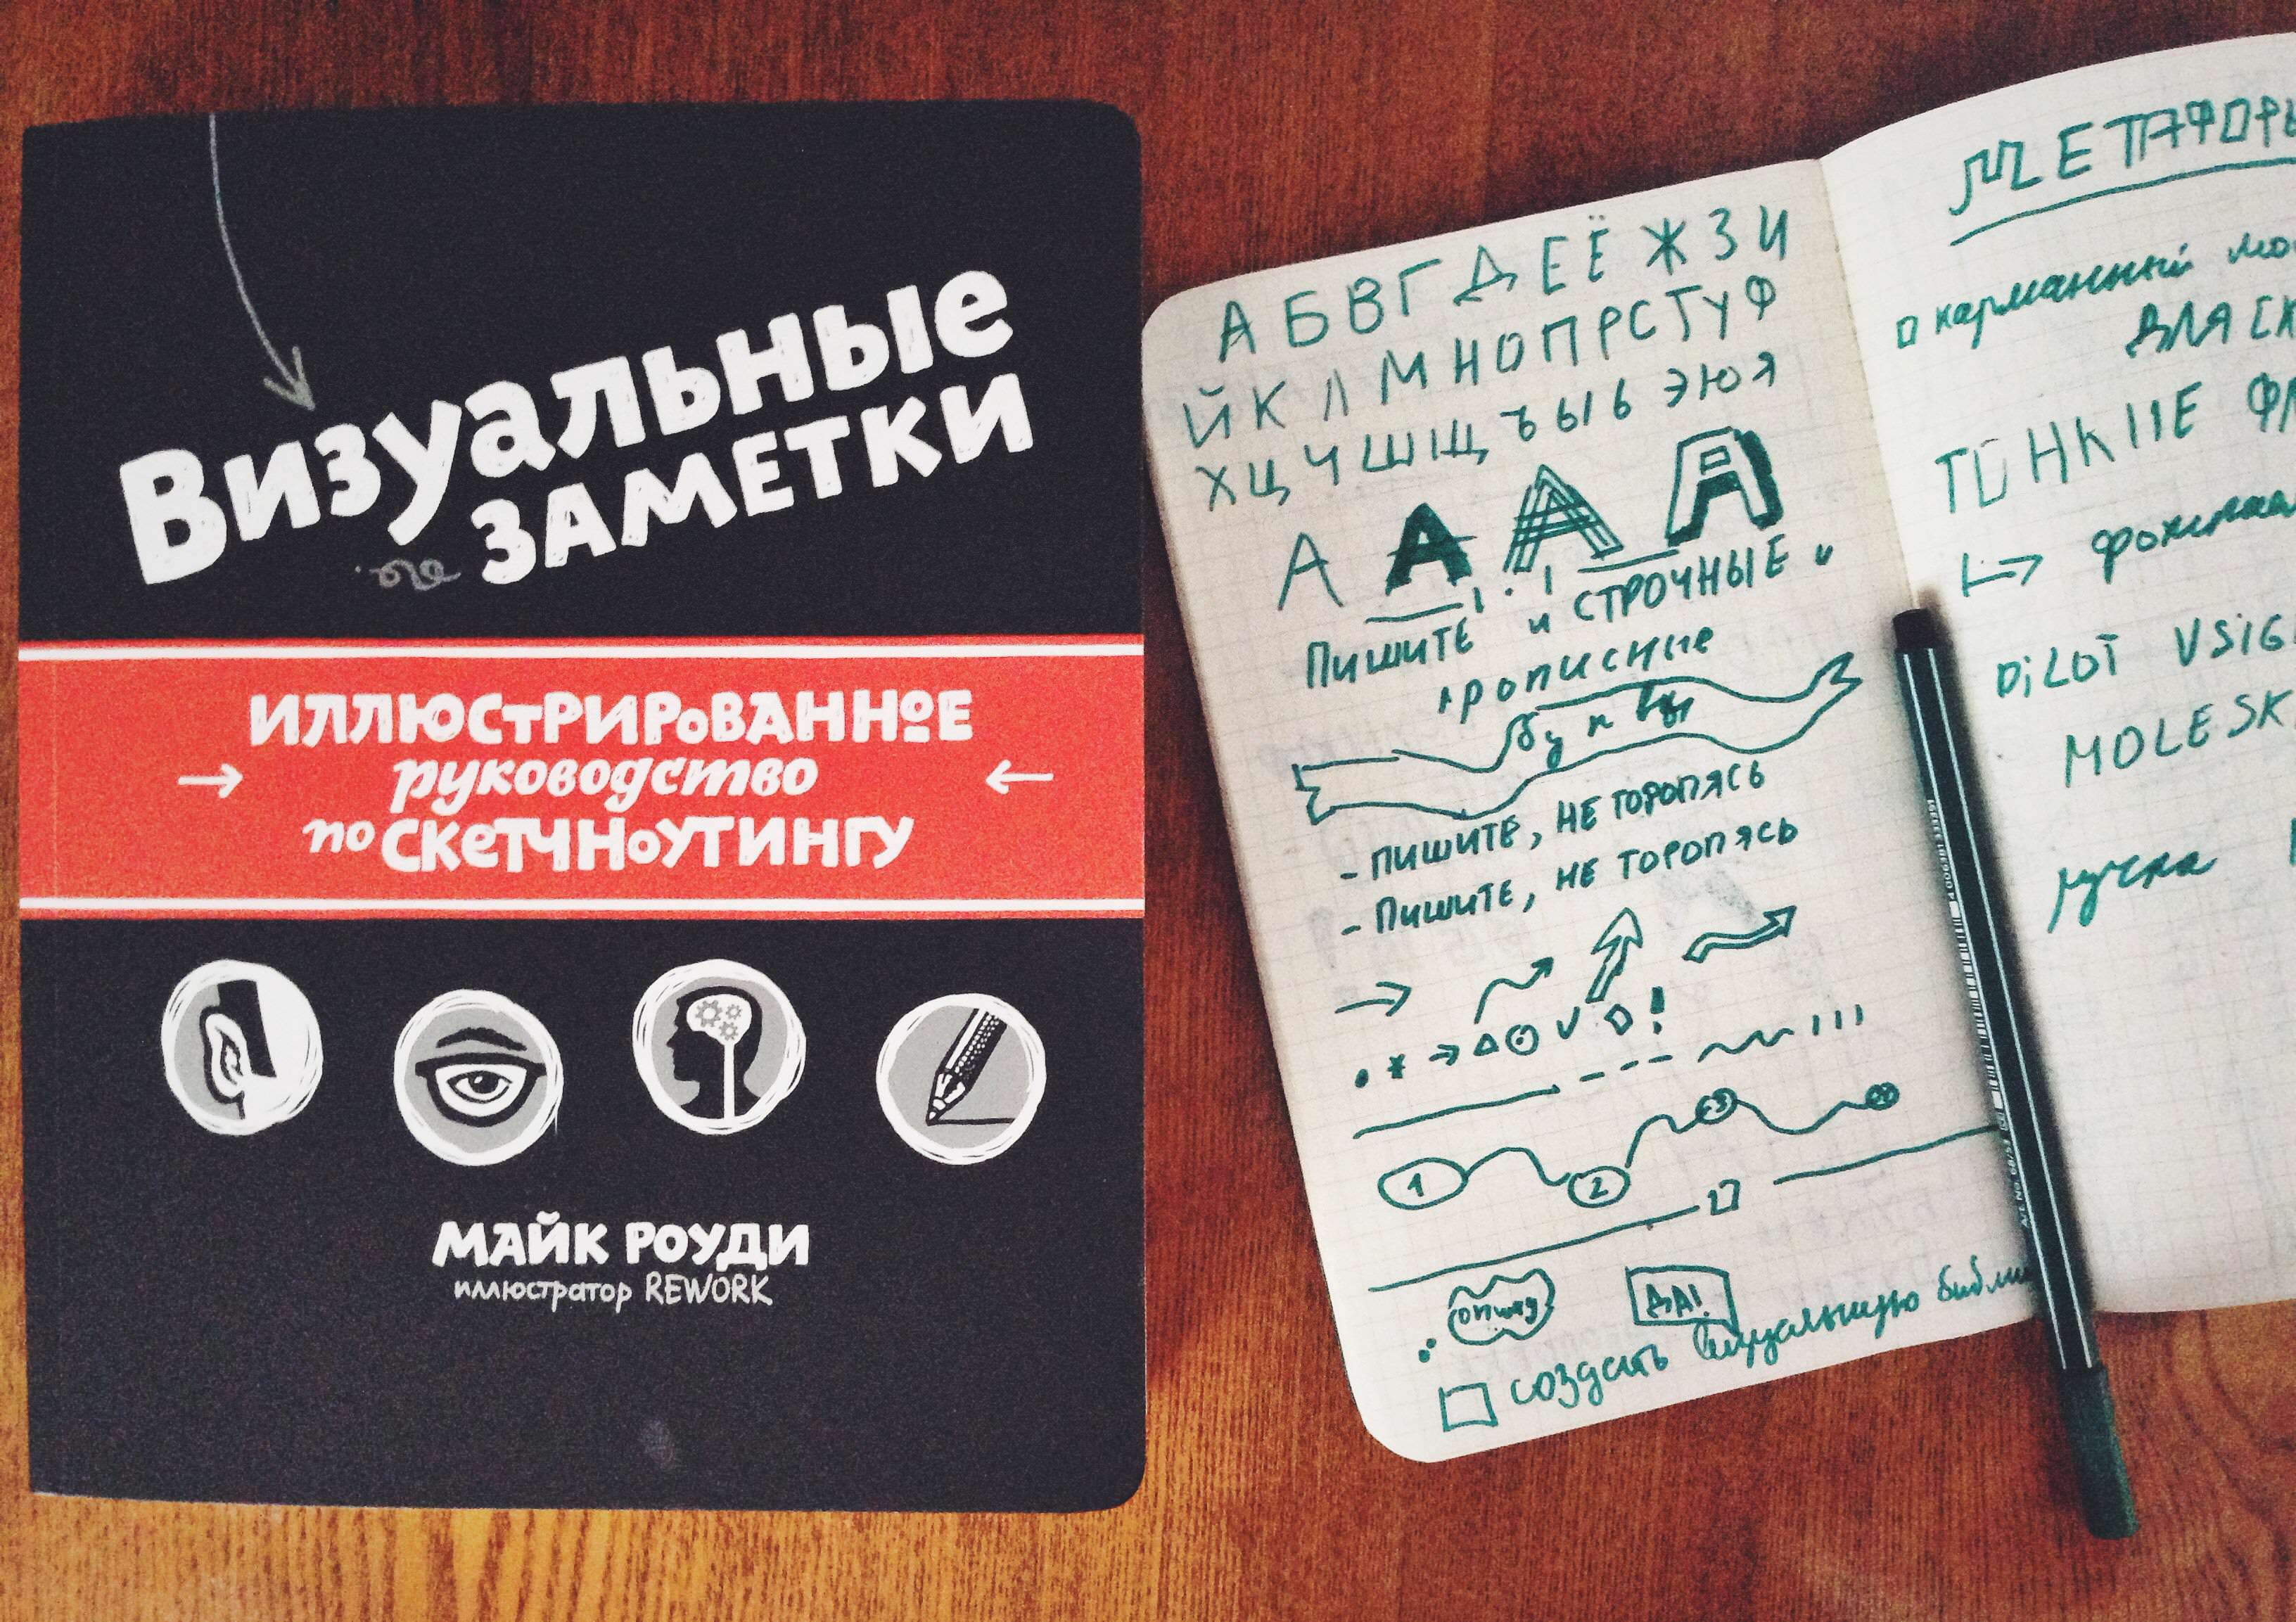 Визуальные
ЗАМЕТКИ
ИЛЛЮСТРИРОВАННОЕ
руководство
по СКЕТЧНОУТИНГУ
МАЙК РОУДИ
иллюстратор REWORK
А Б В Г Д Е Ё Ж З И
Й К Л М Н О П Р С Т У Ф
Х Ц Ч Ш Щ Ъ Ы Ь Э Ю Я
А А А А
ПИШИТЕ и СТРОЧНЫЕ и
прописные
- ПИШИТЕ, НЕ ТОРОПЯСЬ
- ПИШИТЕ, НЕ ТОРОПЯСЬ
1 2
ДА!
создать визуальную
МЕТАФОРЫ
карманный
ДЛЯ
ТОНКИЕ
PILOT
MOLESK
ручка